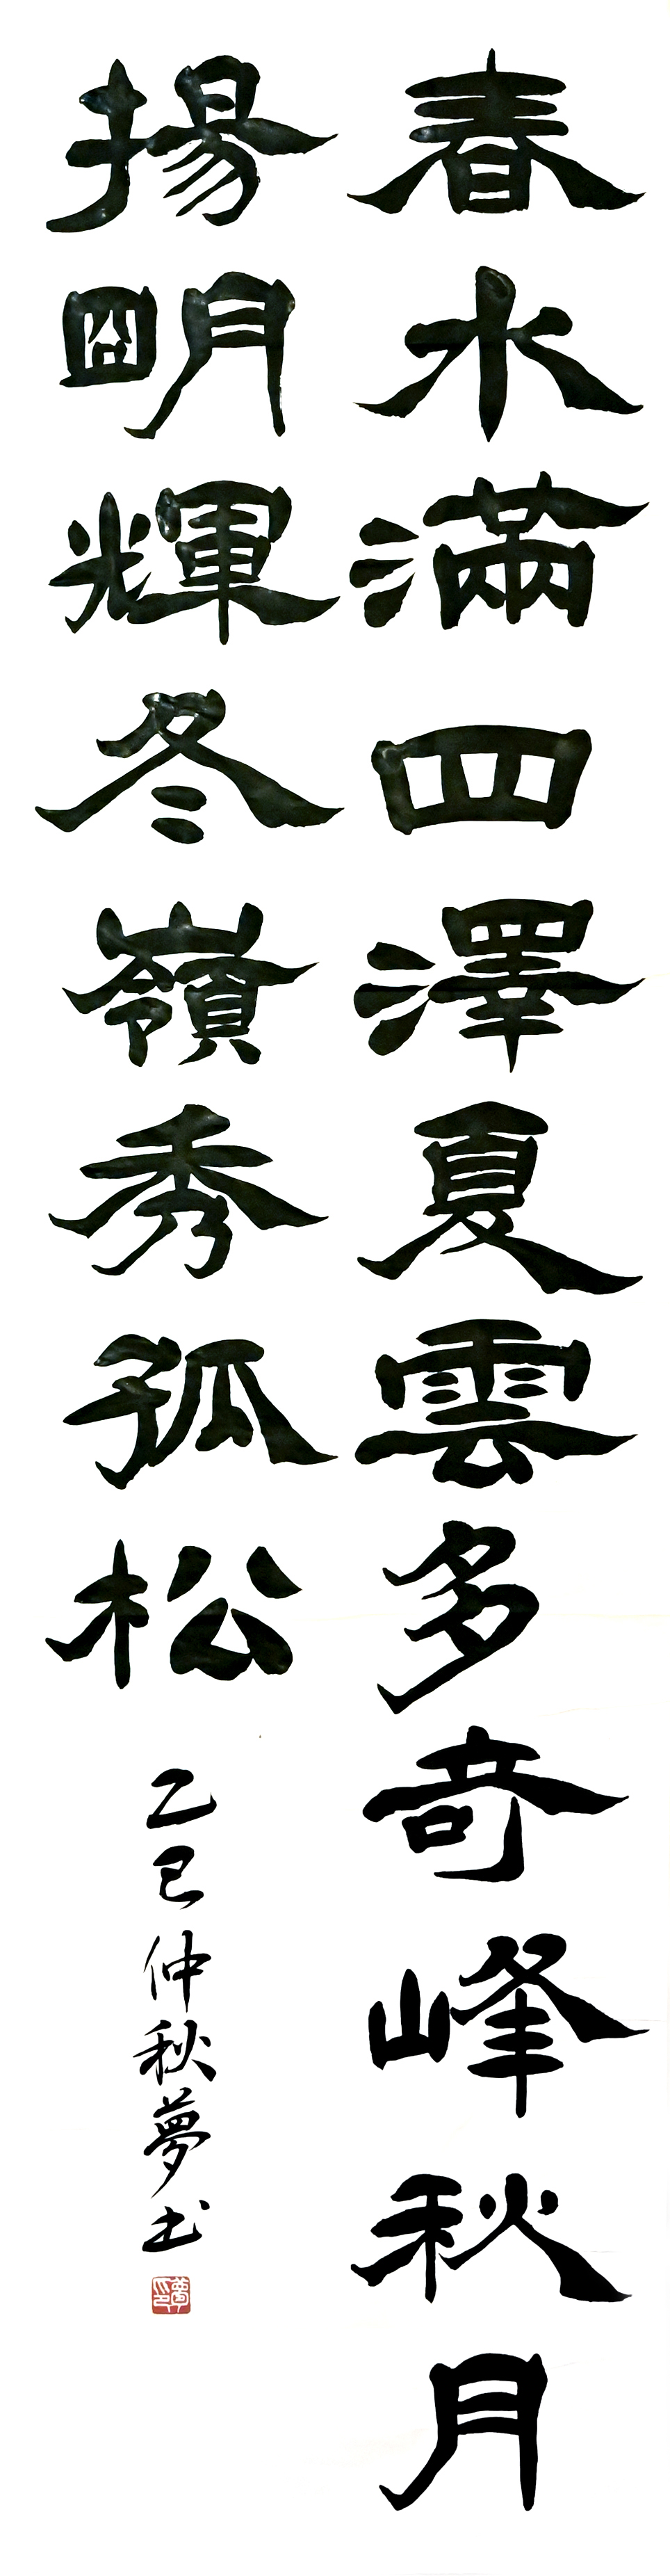 春水滿四澤夏雲多奇峰秋月
揚明輝冬嶺秀孤松
乙巳仲秋夢书